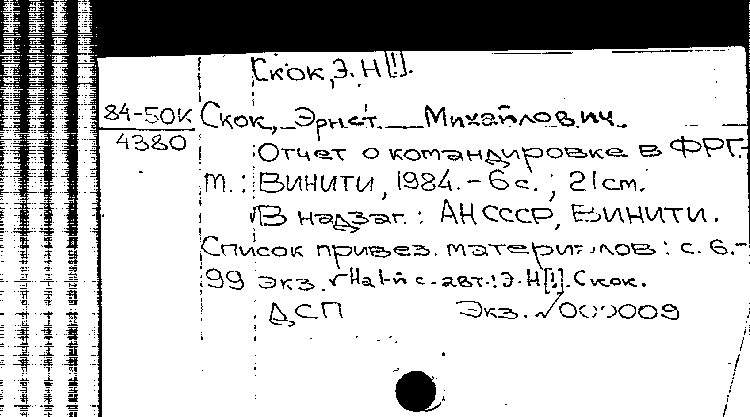 Скок, Э. Н[!].
84-50К Скок, Эрнст Михайлович.
4380
Отчет о командировке в ФРГ.-
М.: ВИНИТИ, 1984. - 6 с. ; 21 см.
В надзаг. : АН СССР, ВИНИТИ.
Список привез. материалов : с. 6.-
99 экз. На 1-й с. авт.: Э. Н[!]. Скок.
ДСП Экз. √000009